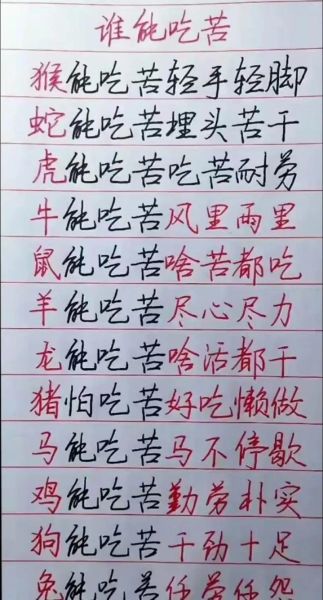 谁能吃苦
猴能吃苦轻手轻脚
蛇能吃苦埋头苦干
虎能吃苦吃苦耐劳
牛能吃苦风里雨里
鼠能吃苦啥苦都吃
羊能吃苦尽心尽力
龙能吃苦啥活都干
猪怕吃苦好吃懒做
马能吃苦马不停歇
鸡能吃苦勤劳朴实
狗能吃苦干劲十足
兔能吃苦任劳任怨